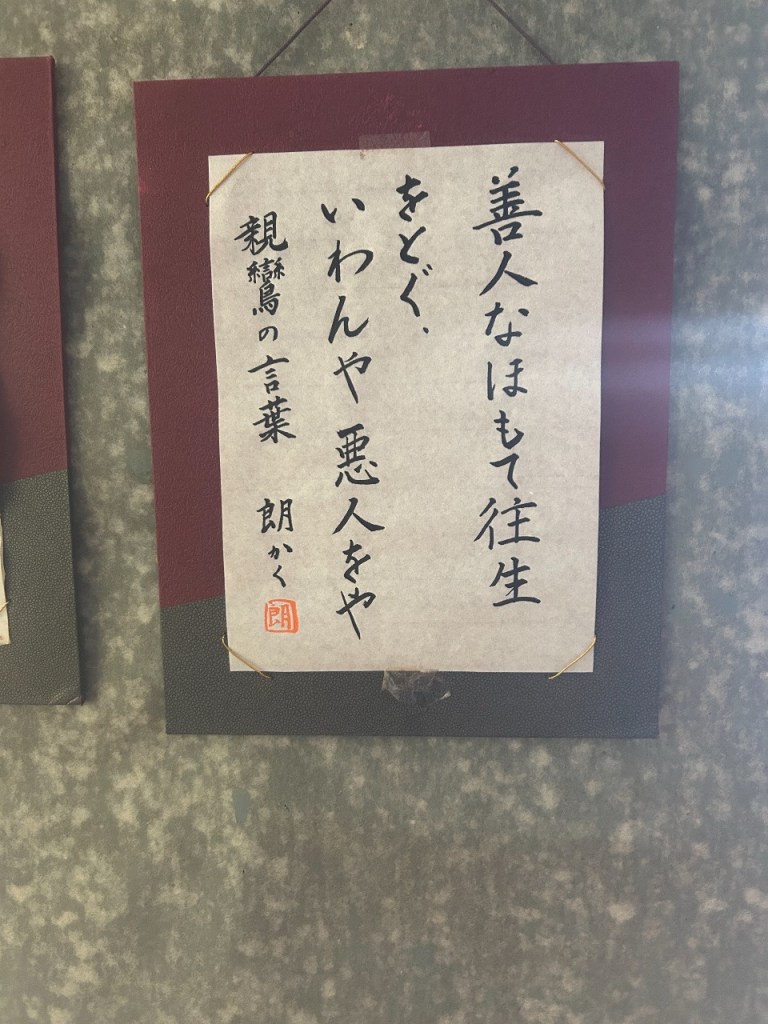 善人なほもて往生
をとぐ、
いわんや悪人をや
親鸞の言葉 朗かく
朗